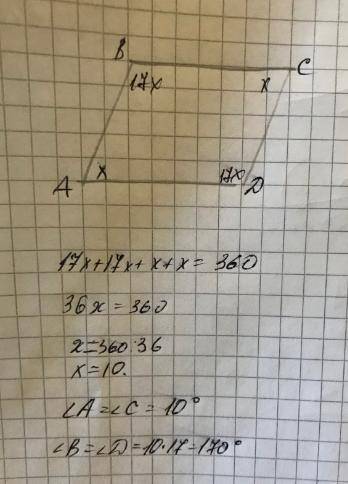 B
C
17x
x
x
17x
A
D
17x+17x+x+x=360
36x=360
x=360:36
x=10.
∠A=∠C=10°
∠B=∠D=10·17=170°